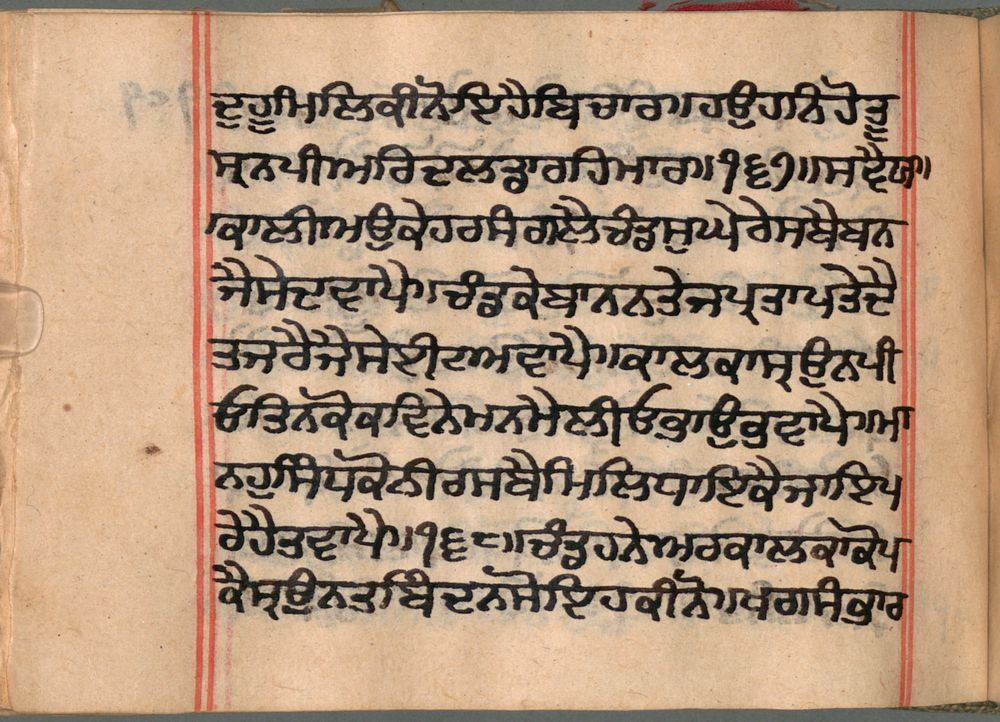 ਦੁਹੂੰਮਿਲਿਕੀਨੋਇਹੈਬਿਚਾਰ॥ਹਉਹਨਿਹੋਤੂ
ਸ੍ਰਨਪੀਅਰਿਦਲਡਾਰਹਿਮਾਰ॥੧੬੭॥ਸਵੈਯਾ॥
ਕਾਲੀਅਉਕੇਹਰਸੰਗਲੈਚੰਡਸੁਘੇਰੇਸਬੈਬਨ
ਜੈਸੇਦਵਾਪੈ॥ਚੰਡਕੇਬਾਨਨਤੇਜਪ੍ਰਤਾਪਤੇਦੈ
ਤਜਰੈਜੈਸੇਈਟਅਵਾਪੈ॥ਕਾਲਕਾਸ੍ਰਉਨਪੀ
ਓਤਿਨਕੋਕਵਿਨੇਮਨਮੈਲੀਓਭਾਉਭਵਾਪੈ॥ਮਾ
ਨਹੁਸਿੰਧਕੋਨੀਰਸਬੈਮਿਲਿਧਾਇਕੈਜਾਇਪ
ਰੇਹੈਤਵਾਪੈ॥੧੬੮॥ਚੰਡਹਨੇਅਰਕਾਲਕਾਕੋਪ
ਕੈਸ੍ਰਉਨਤਬਿੰਦਨਸੋਇਹਕੀਨੋ॥ਖਗਸੰਭਾਰ